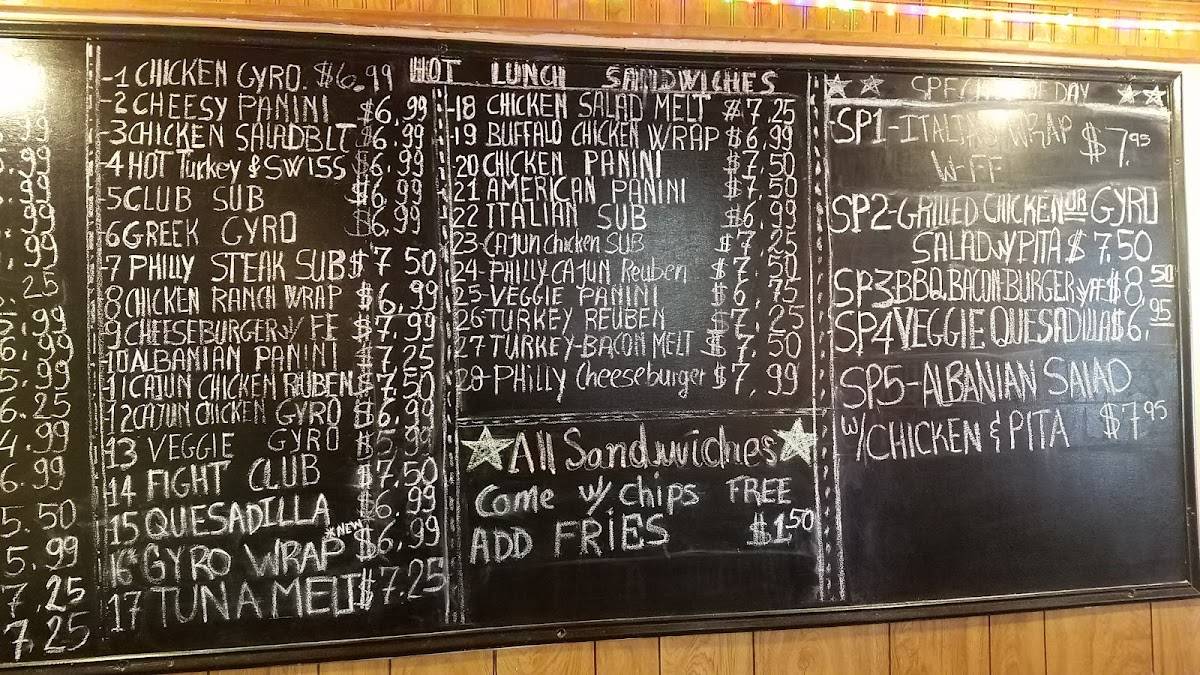 5.50
5.99
7.25
7.25
6.25
4.99
6.99
-1 CHICKEN GYRO. $6.99
-2 CHEESY PANINI $6.99
-3 CHICKEN SALADBLT $6.99
-4 HOT Turkey & SWISS $6.99
5 CLUB SUB $6.99
6 GREEK GYRO $6.99
7 PHILLY STEAK SUB $7.50
8 CHICKEN RANCH WRAP $6.99
9 CHEESEBURGER W/ FF $7.99
10 ALBANIAN PANINI $7.25
11 CAJUN CHICKEN RUBEN $7.50
12 CAJUN CHICKEN GYRO $6.99
13 VEGGIE GYRO $5.99
14 FIGHT CLUB $7.50
15 QUESADILLA $6.99
*NEW
16 GYRO WRAP $6.99
17 TUNA MELT $7.25
HOT LUNCH SANDWICHES
-18 CHICKEN SALAD MELT $7.25
-19 BUFFALO CHICKEN WRAP $6.99
20 CHICKEN PANINI $7.50
21 AMERICAN PANINI $7.50
22 ITALIAN SUB $6.99
23-CAJUN Chicken SUB $7.25
24-PHILLY CAJUN Reuben $7.50
25-VEGGIE PANINI $6.75
26-TURKEY REUBEN $7.25
27 TURKEY-BACON MELT $7.50
28-PHILLY Cheeseburger $7.99
All Sandwiches
Come w/ chips FREE
ADD FRiES $1.50
DAY
SP1-ITALIAN WRAP $7.95
W-FF
SP2-GRILLED CHICKEN OR GYRO
SALAD W/PITA $7.50
SP3 BBQ.BACON BURGER W/FF $8.50
SP4 VEGGIE QUESADILLA $6.95
SP5-ALBANIAN SALAD
W/CHICKEN & PITA $7.95